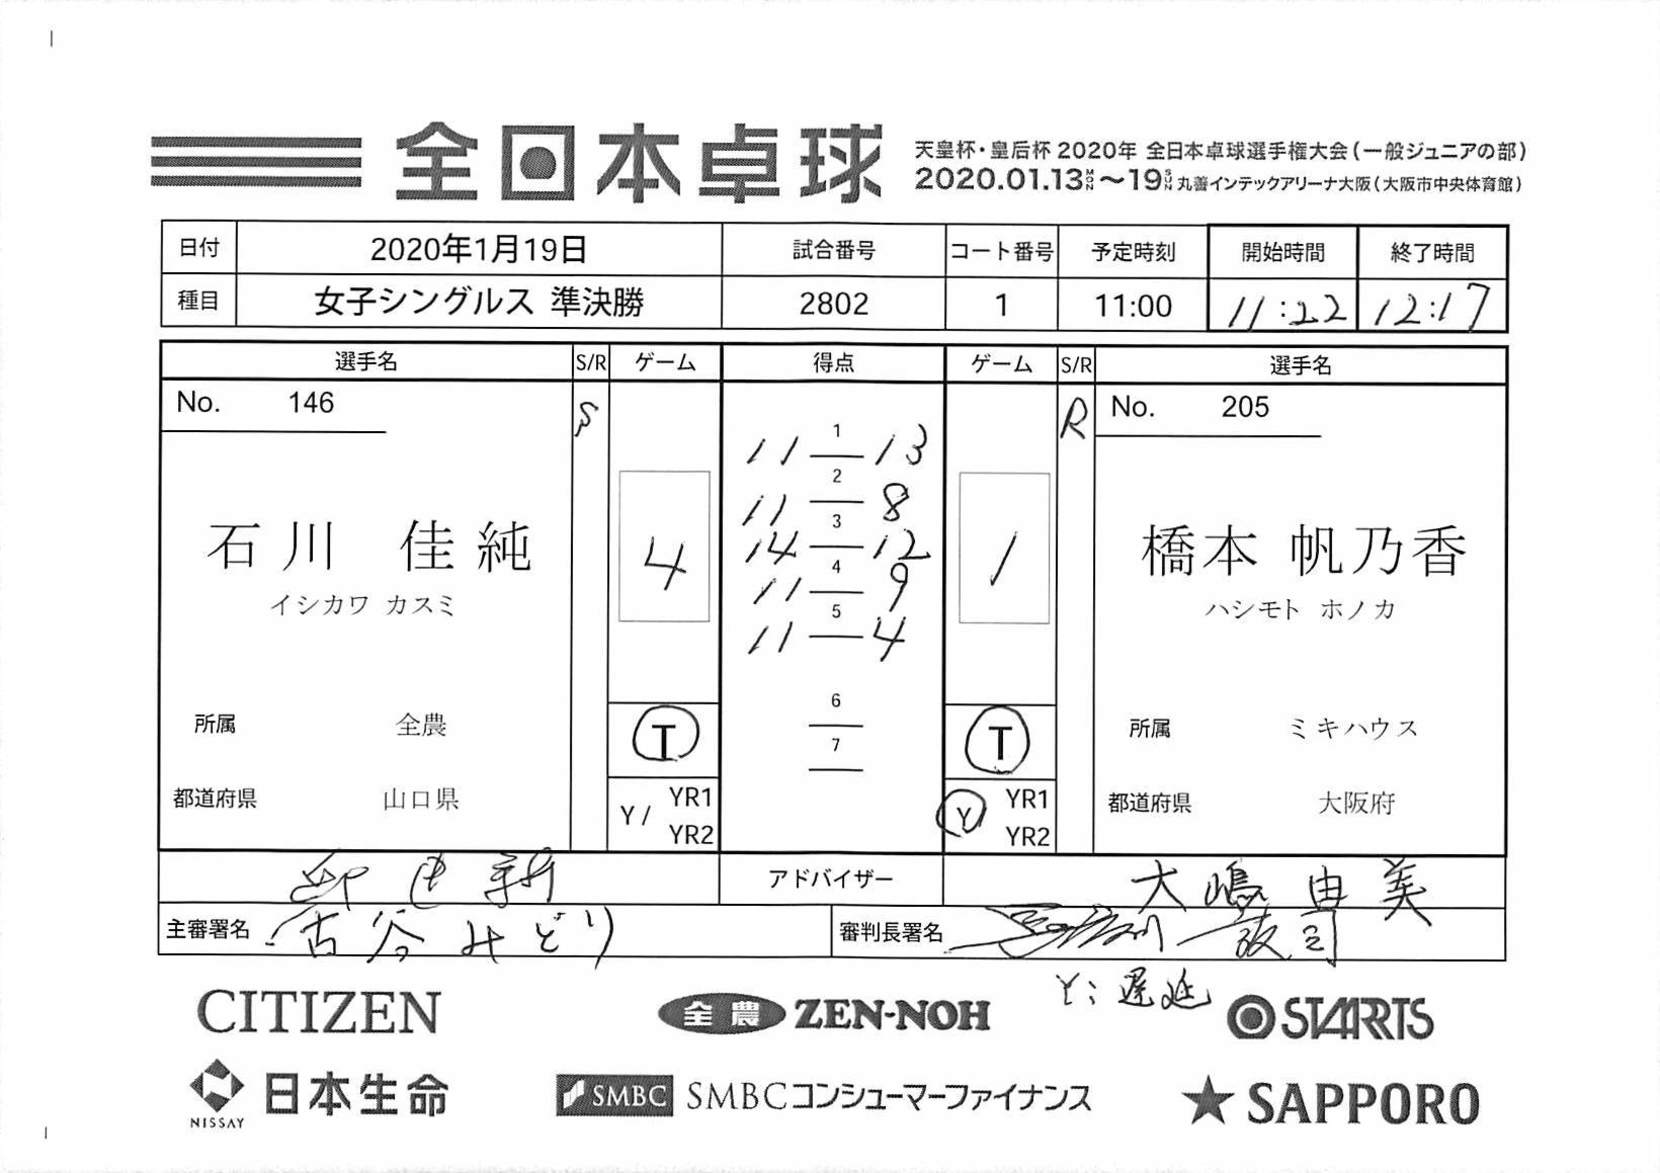 全日本卓球
天皇杯・皇后杯 2020年 全日本卓球選手権大会(一般ジュニアの部)
2020.01.13MON〜19SUN 丸善インテックアリーナ大阪(大阪市中央体育館)
日付 2020年1月19日 試合番号 コート番号 予定時刻 開始時間 終了時間
種目 女子シングルス 準決勝 2802 1 11:00 11:22 12:17
選手名 S/R ゲーム 得点 ゲーム S/R 選手名
No. 146 S R No. 205
11 1 13
11 2 8
14 3 12
11 4 9
11 5 4
6
7
石川 佳純 4 1 橋本 帆乃香
イシカワ カスミ ハシモト ホノカ
所属 全農 T T 所属 ミキハウス
都道府県 山口県 Y / YR1 YR2 Y / YR1 YR2 都道府県 大阪府
アドバイザー 大嶋 由美
主審署名 古谷 みどり 審判長署名
Y: 遅延
CITIZEN 全農 ZEN-NOH STARTS
NISSAY 日本生命 SMBC SMBCコンシューマーファイナンス SAPPORO